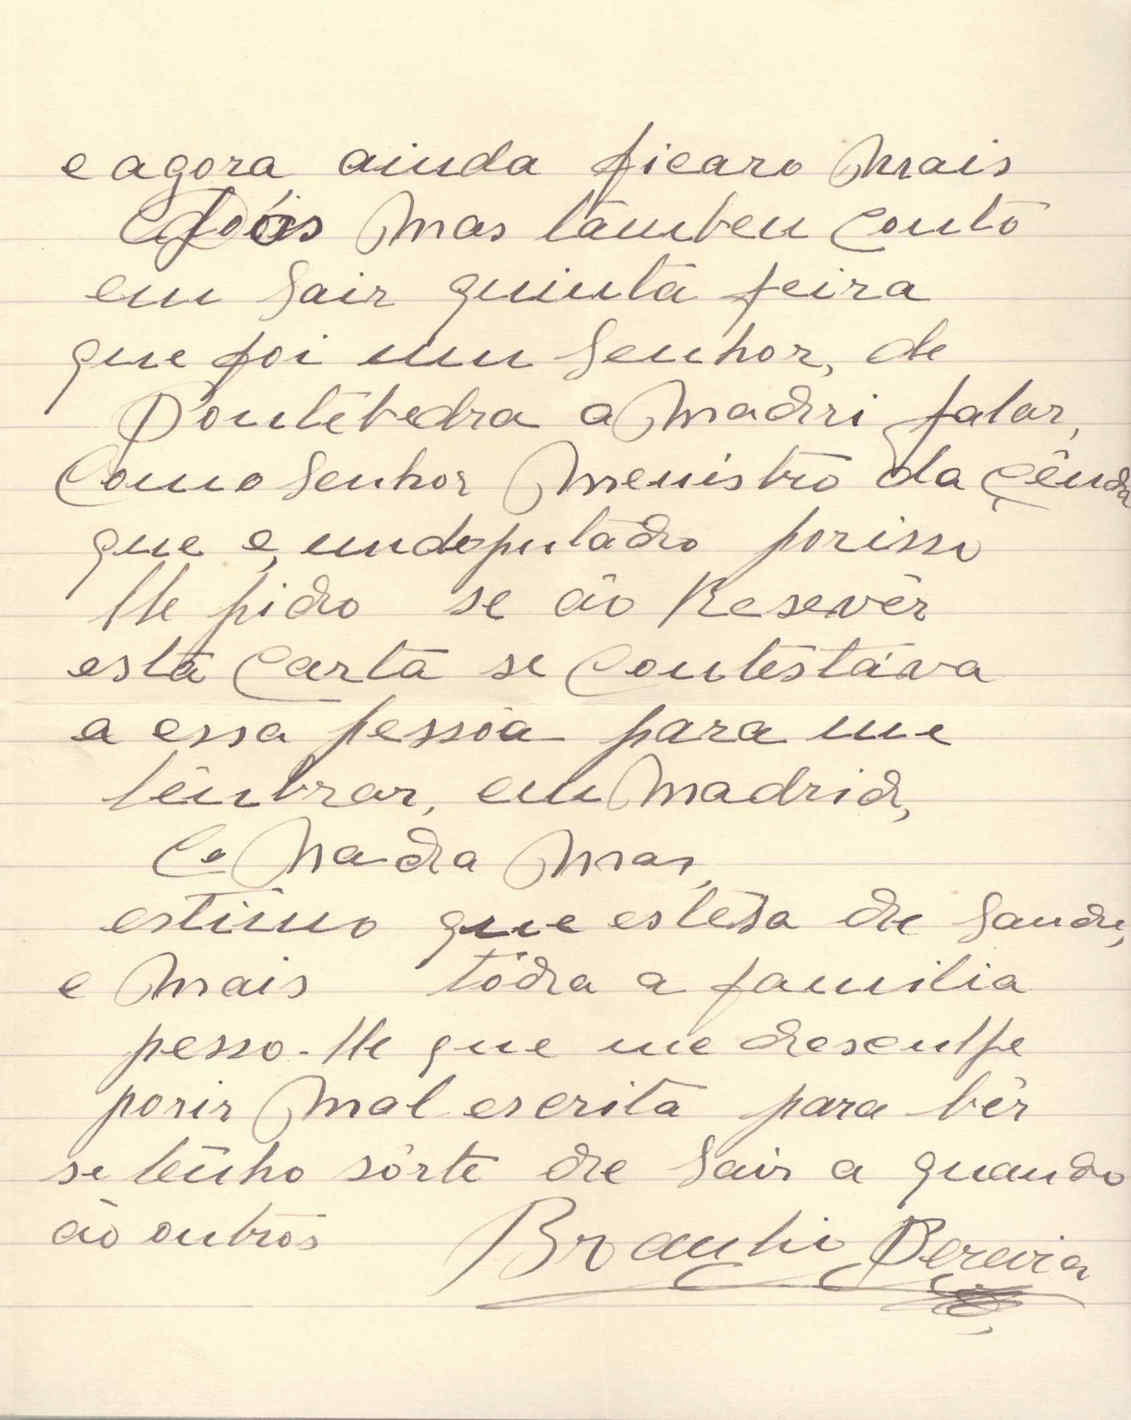 e agora ainda ficaro mais
dois mas tãmben contõ
em Sair quintã feira
que foi um Senhor, de
Pontêvedra a Madri falar,
Como Senhor Menistrõ da
que e undeputadro porisso
lle pidro se ão Resevêr
estã Cartã se Contêstáva
a essa pessòa para me
lênbrar, em Madrid,
e Nadra mas,
estimo que estêja dre Saudre,
e Mais tôdra a familia
pesso-lle que me dresculpe
porir Mal escritã para bêr
se tênho sòrte dre Sair a quandro
ão outrõs Braulio Pereira